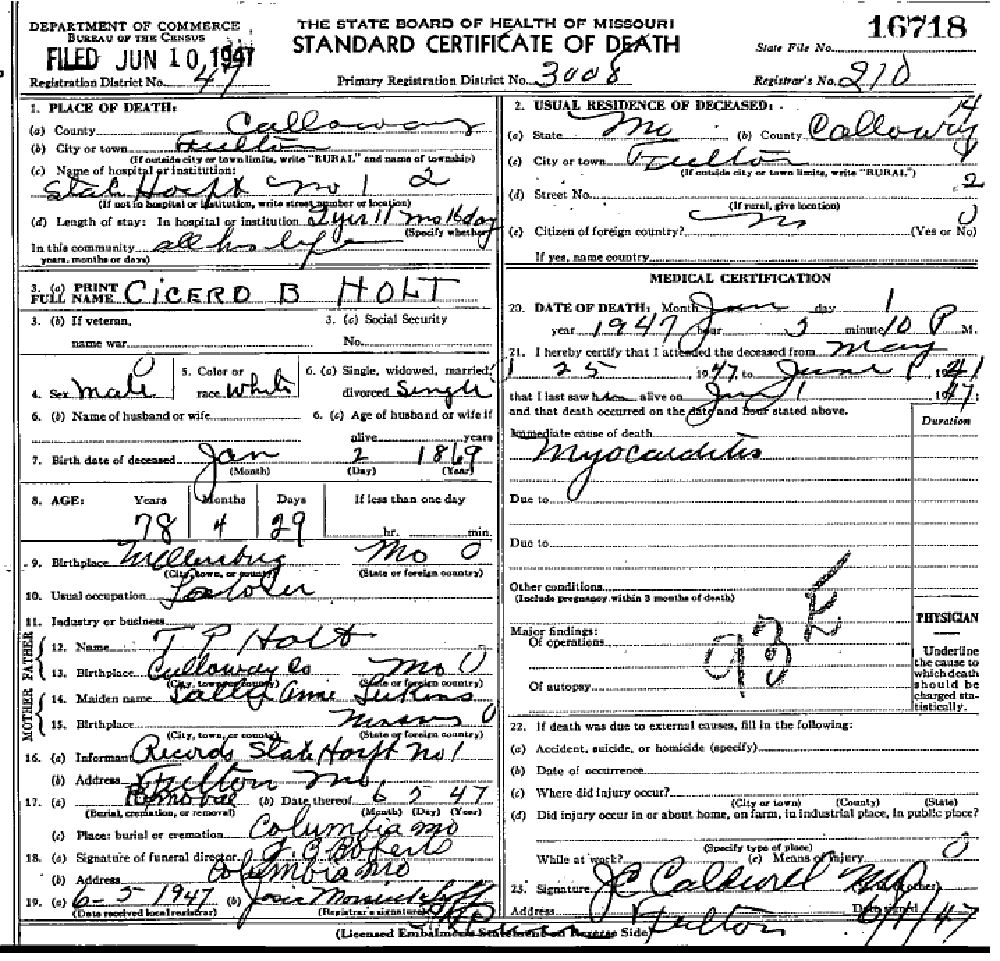 DEPARTMENT OF COMMERCE
BUREAU OF THE CENSUS
FILED JUN 10, 1947
Registration District No. 47
THE STATE BOARD OF HEALTH OF MISSOURI
STANDARD CERTIFICATE OF DEATH
Primary Registration District No. 3008
16718
State File No.
Registrar's No. 210
1. PLACE OF DEATH:
(a) County Calloway
(b) City or town Fulton
(If outside city or town limits, write "RURAL" and name of township)
(c) Name of hospital or institution:
State Hospt no 1 2
(If not in hospital or institution, write street number or location)
(d) Length of stay: In hospital or institution yr 11 mo day
(Specify whether
In this community all his life
years, months or days)
3. (a) PRINT FULL NAME CICERO B HOLT
3. (b) If veteran, name war
3. (c) Social Security No.
4. Sex Male
5. Color or race White
6. (a) Single, widowed, married, divorced Single
6. (b) Name of husband or wife
6. (c) Age of husband or wife if alive years
7. Birth date of deceased Jan 2 1869
(Month) (Day) (Year)
8. AGE: Years Months Days If less than one day
78 4 29 hr. min.
9. Birthplace Mo 0
(City, town, or county) (State or foreign country)
10. Usual occupation
11. Industry or business
FATHER
12. Name T P Holt
13. Birthplace Calloway Co Mo 0
(City, town, or county) (State or foreign country)
MOTHER
14. Maiden name Sallie Ann
15. Birthplace
(City, town, or county) (State or foreign country)
16. (a) Informant Records State Hospt No 1
(b) Address Fulton Mo
17. (a) Removal (b) Date thereof 6 5 47
(Burial, cremation, or removal) (Month) (Day) (Year)
(c) Place: burial or cremation Columbia Mo
18. (a) Signature of funeral director Roberts
(b) Address Columbia Mo
19. (a) 6-5 1947 (b) Josie
(Date received local registrar) (Registrar's signature)
2. USUAL RESIDENCE OF DECEASED: 14
(a) State Mo (b) County Calloway
(c) City or town Fulton
(If outside city or town limits, write "RURAL")
2
(d) Street No.
(If rural, give location)
(e) Citizen of foreign country? No 0 (Yes or No)
If yes, name country
MEDICAL CERTIFICATION
20. DATE OF DEATH: Month day 1
year 1947 hour minute 10 P M.
21. I hereby certify that I attended the deceased from May
25 1947, to June 1
that I last saw him alive on 1
and that death occurred on the date and hour stated above.
Duration
Immediate cause of death
Myocarditis
Due to
Due to
Other conditions
(Include pregnancy within 3 months of death)
Major findings:
Of operations
Of autopsy
93
PHYSICIAN
Underline the cause to which death should be charged statistically.
22. If death was due to external causes, fill in the following:
(a) Accident, suicide, or homicide (specify)
(b) Date of occurrence
(c) Where did injury occur?
(City or town) (County) (State)
(d) Did injury occur in or about home, on farm, in industrial place, in public place?
0
(Specify type of place)
While at work? (e) Means of injury
23. Signature J C Caldwell MD
Address Fulton Date signed 6/1/47
(Licensed Embalmer's Statement on Reverse Side)